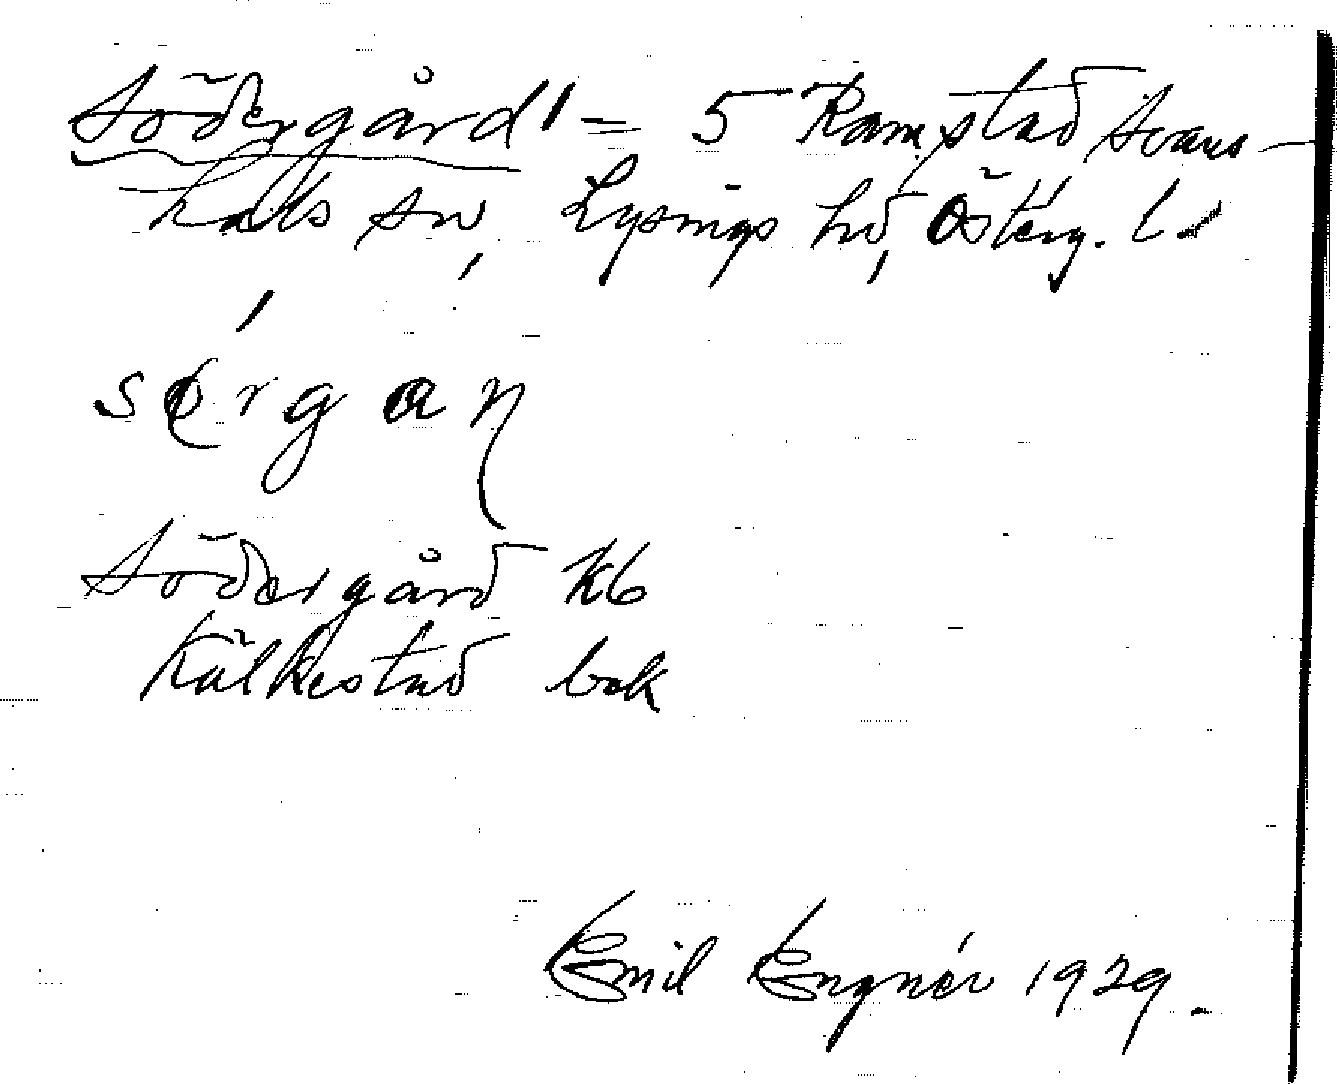 Södergård' = 5 Ramstad Svans-
hals sn, Lysings hd, Österg. l.
sørgan
Södergård Kb
Kälkestad bok
Emil Engnér 1929.